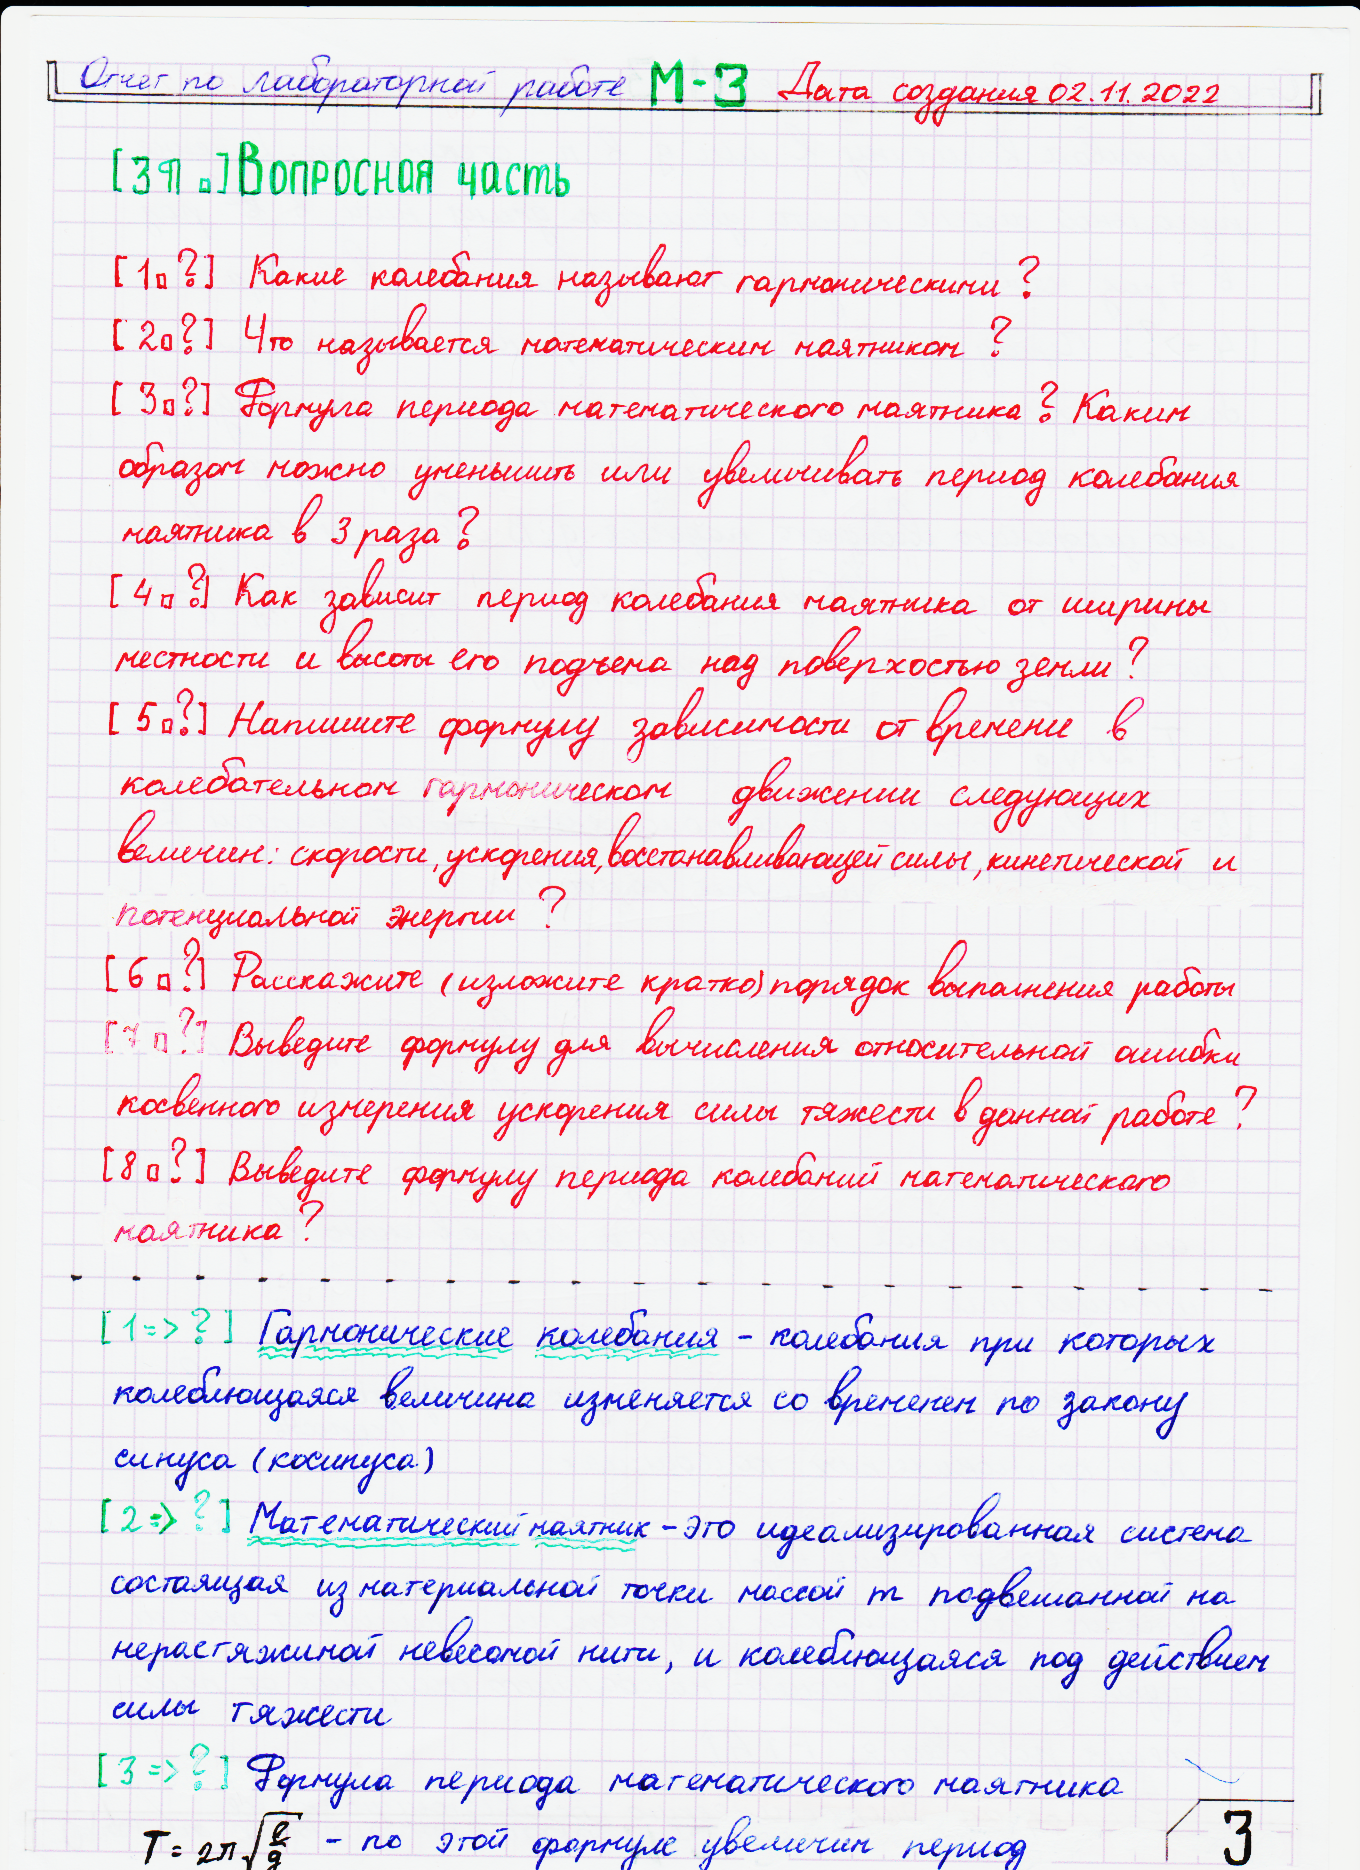 Отчет по лабораторной работе М-3 Дата создания 02.11.2022
[3¶.] Вопросная часть
[1.?] Какие колебания называют гармоническими?
[2.?] Что называется математическим маятником?
[3.?] Формула периода математического маятника? Каким
образом можно уменьшить или увеличивать период колебания
маятника в 3 раза?
[4.?] Как зависит период колебания маятника от ширины
местности и высоты его подъема над поверхостью земли?
[5.?] Напишите формулу зависимости от времени в
колебательном гармоническом движении следующих
величин: скорости, ускорения, восстанавливающей силы, кинетической и
потенциальной энергии?
[6.?] Расскажите (изложите кратко) порядок выполнения работы
[7.?] Выведите формулу для вычисления относительной ошибки
косвенного измерения ускорения силы тяжести в данной работе?
[8.?] Выведите формулу периода колебаний математического
маятника?
[1=>?] Гармонические колебания - колебания при которых
колеблющаяся величина изменяется со временем по закону
синуса (косинуса)
[2=>?] Математический маятник - это идеализированная система
состаящая из материальной точки массой m подвешанной на
нерастяжимой невесомой нити, и колеблющаяся под действием
силы тяжести
[3=>?] Формула периода математического маятника
T = 2π√(l/g) - по этой формуле увеличим период
3